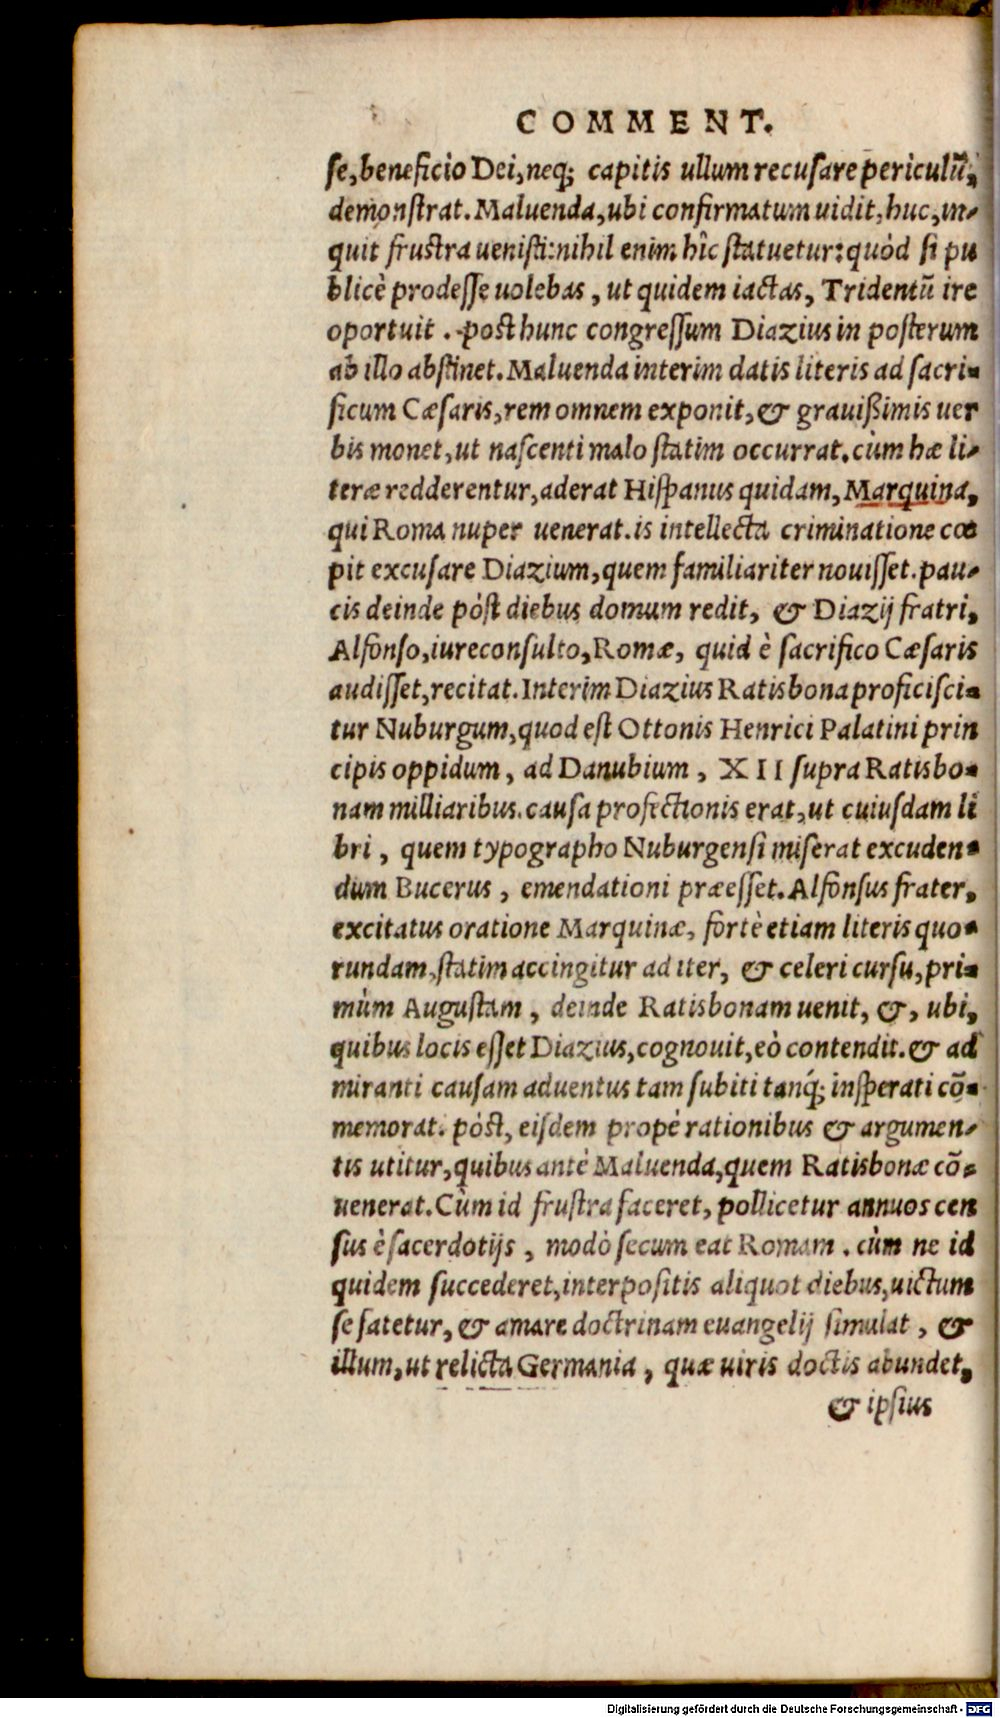 COMMENT.
se, beneficio Dei, neq; capitis ullum recusare periculũ,
demonstrat. Maluenda, ubi confirmatum uidit, huc, in-
quit frustra uenisti: nihil enim hîc statuetur: quòd si pu
blicè prodesse uolebas, ut quidem iactas, Tridentũ ire
oportuit. post hunc congressum Diazius in posterum
ab illo abstinet. Maluenda interim datis literis ad sacri-
ficum Cæsaris, rem omnem exponit, & grauißimis uer
bis monet, ut nascenti malo statim occurrat. cùm hæ li-
teræ redderentur, aderat Hispanus quidam, Marquina,
qui Roma nuper uenerat. is intellecta criminatione cœ
pit excusare Diazium, quem familiariter nouisset. pau-
cis deinde pòst diebus domum redit, & Diazij fratri,
Alfonso, iureconsulto, Romæ, quid è sacrifico Cæsaris
audisset, recitat. Interim Diazius Ratisbona proficisci-
tur Nuburgum, quod est Ottonis Henrici Palatini prin
cipis oppidum, ad Danubium, XII supra Ratisbo-
nam milliaribus. causa profectionis erat, ut cuiusdam li
bri, quem typographo Nuburgensi miserat excuden-
dum Bucerus, emendationi præesset. Alfonsus frater,
excitatus oratione Marquinæ, fortè etiam literis quo-
rundam, statim accingitur ad iter, & celeri cursu, pri-
mùm Augustam, deinde Ratisbonam uenit, &, ubi,
quibus locis esset Diazius, cognouit, eò contendit. & ad
miranti causam aduentus tam subiti tanq́; insperati cõ-
memorat. pòst, eisdem propè rationibus & argumen-
tis utitur, quibus antè Maluenda, quem Ratisbonæ cõ-
uenerat. Cùm id frustra faceret, pollicetur annuos cen
sus è sacerdotijs, modò secum eat Romam. cùm ne id
quidem succederet, interpositis aliquot diebus, uictum
se fatetur, & amare doctrinam euangelij simulat, &
illum, ut relicta Germania, quæ uiris doctis abundet,
& ipsius
Digitalisierung gefördert durch die Deutsche Forschungsgemeinschaft - DFG